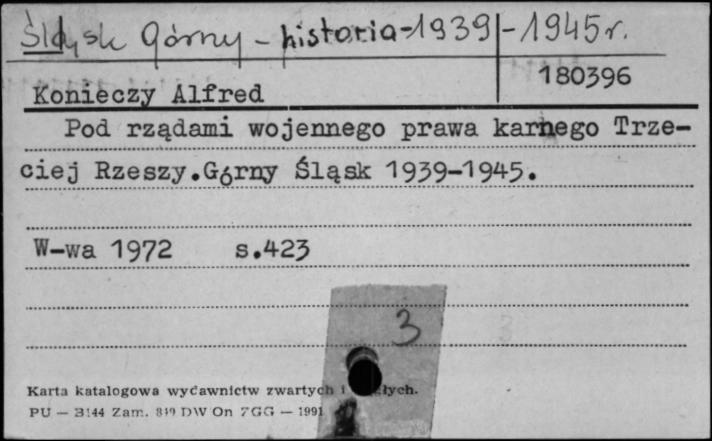 Śląsk Górny - historia - 1939 - 1945 r.
180396
Konieczy Alfred
Pod rządami wojennego prawa karnego Trze-
ciej Rzeszy.Górny Śląsk 1939-1945.
W-wa 1972 s.423
3
Karta katalogowa wydawnictw zwartych i
PU — B144 Zam. DW On ZGG — 1991